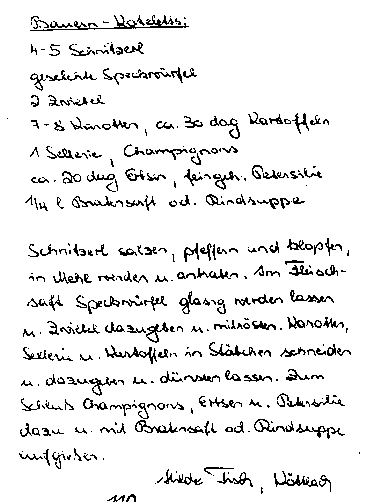 Bauern-Koteletts:
4-5 Schnitzerl
geselchte Speckwürfel
2 Zwiebel
7-8 Karotten, ca. 30 dag Kartoffeln
1 Sellerie, Champignons
ca. 20 dag Erbsen, feingeh. Petersilie
1/4 l Bratensaft od. Rindsuppe
Schnitzerl salzen, pfeffern und klopfen,
in Mehl wenden u. anbraten. Im Fleisch-
saft Speckwürfel glasig werden lassen
u. Zwiebel dazugeben u. mitrösten. Karotten,
Sellerie u. Kartoffeln in Stäbchen schneiden
u. dazugeben u. dünsten lassen. Zum
Schluß Champignons, Erbsen u. Petersilie
dazu u. mit Bratensaft od. Rindsuppe
aufgießen.
Hilde Fisch,
110